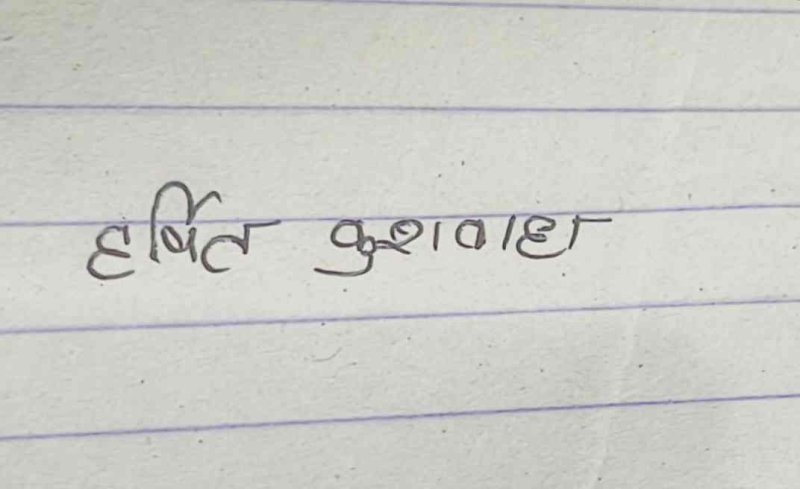 हर्षित कुशवाहा